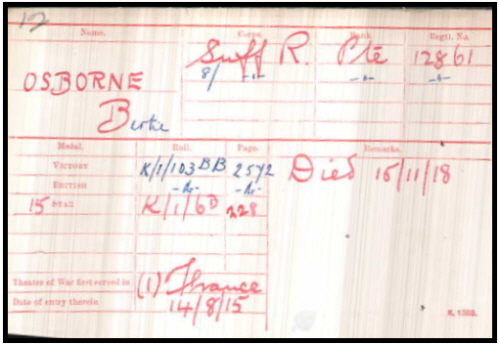 12
Name. Corps. Rank. Regtl. No.
OSBORNE Suff R. Pte 12861
8/ -"- -"- -"-
Bertie
Medal. Roll. Page. Remarks.
VICTORY K/1/103 BB 2572 Died 15/11/18
BRITISH -do- -do-
15 STAR K/1/6 B 228
Theatre of War first served in (1) France
Date of entry therein 14/8/15
K. 1380.